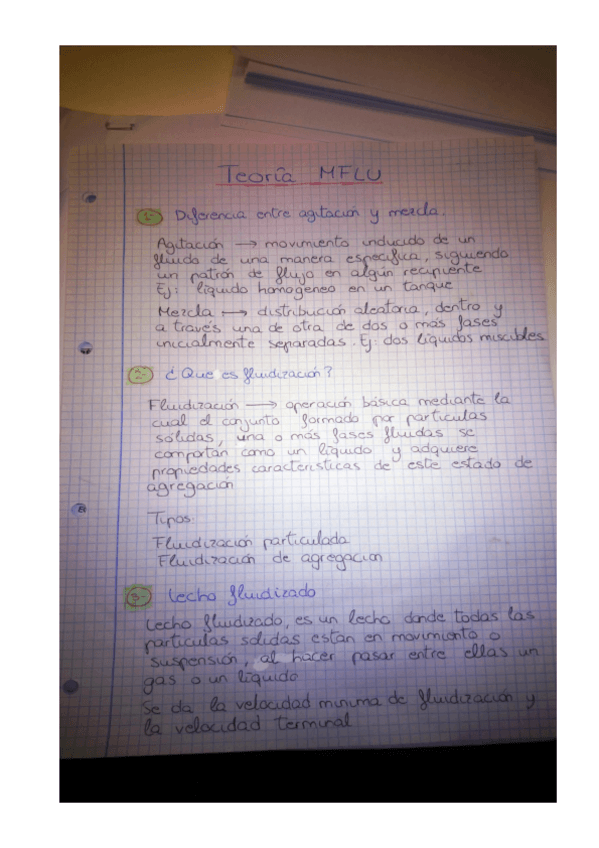 Teoría MFLU
1- Diferencia entre agitación y mezcla.
Agitación → movimiento inducido de un
fluido de una manera especifica, siguiendo
un patrón de flujo en algún recipiente
Ej: liquido homogeneo en un tanque
Mezcla → distribución aleatoria, dentro y
a través una de otra de dos o más fases
inicialmente separadas. Ej: dos líquidos miscibles
2- ¿Que es fluidización?
Fluidización → operación básica mediante la
cual el conjunto formado por particulas
sólidas, una o más fases fluidas se
comportan como un líquido y adquiere
propiedades caracteristicas de este estado de
agregación
Tipos:
Fluidización particulada
Fluidización de agregacion
3- Lecho fluidizado
Lecho fluidizado, es un lecho donde todas las
particulas solidas estan en movimiento o
suspensión, al hacer pasar entre ellas un
gas o un líquido
Se da la velocidad minima de fluidización y
la velocidad terminal